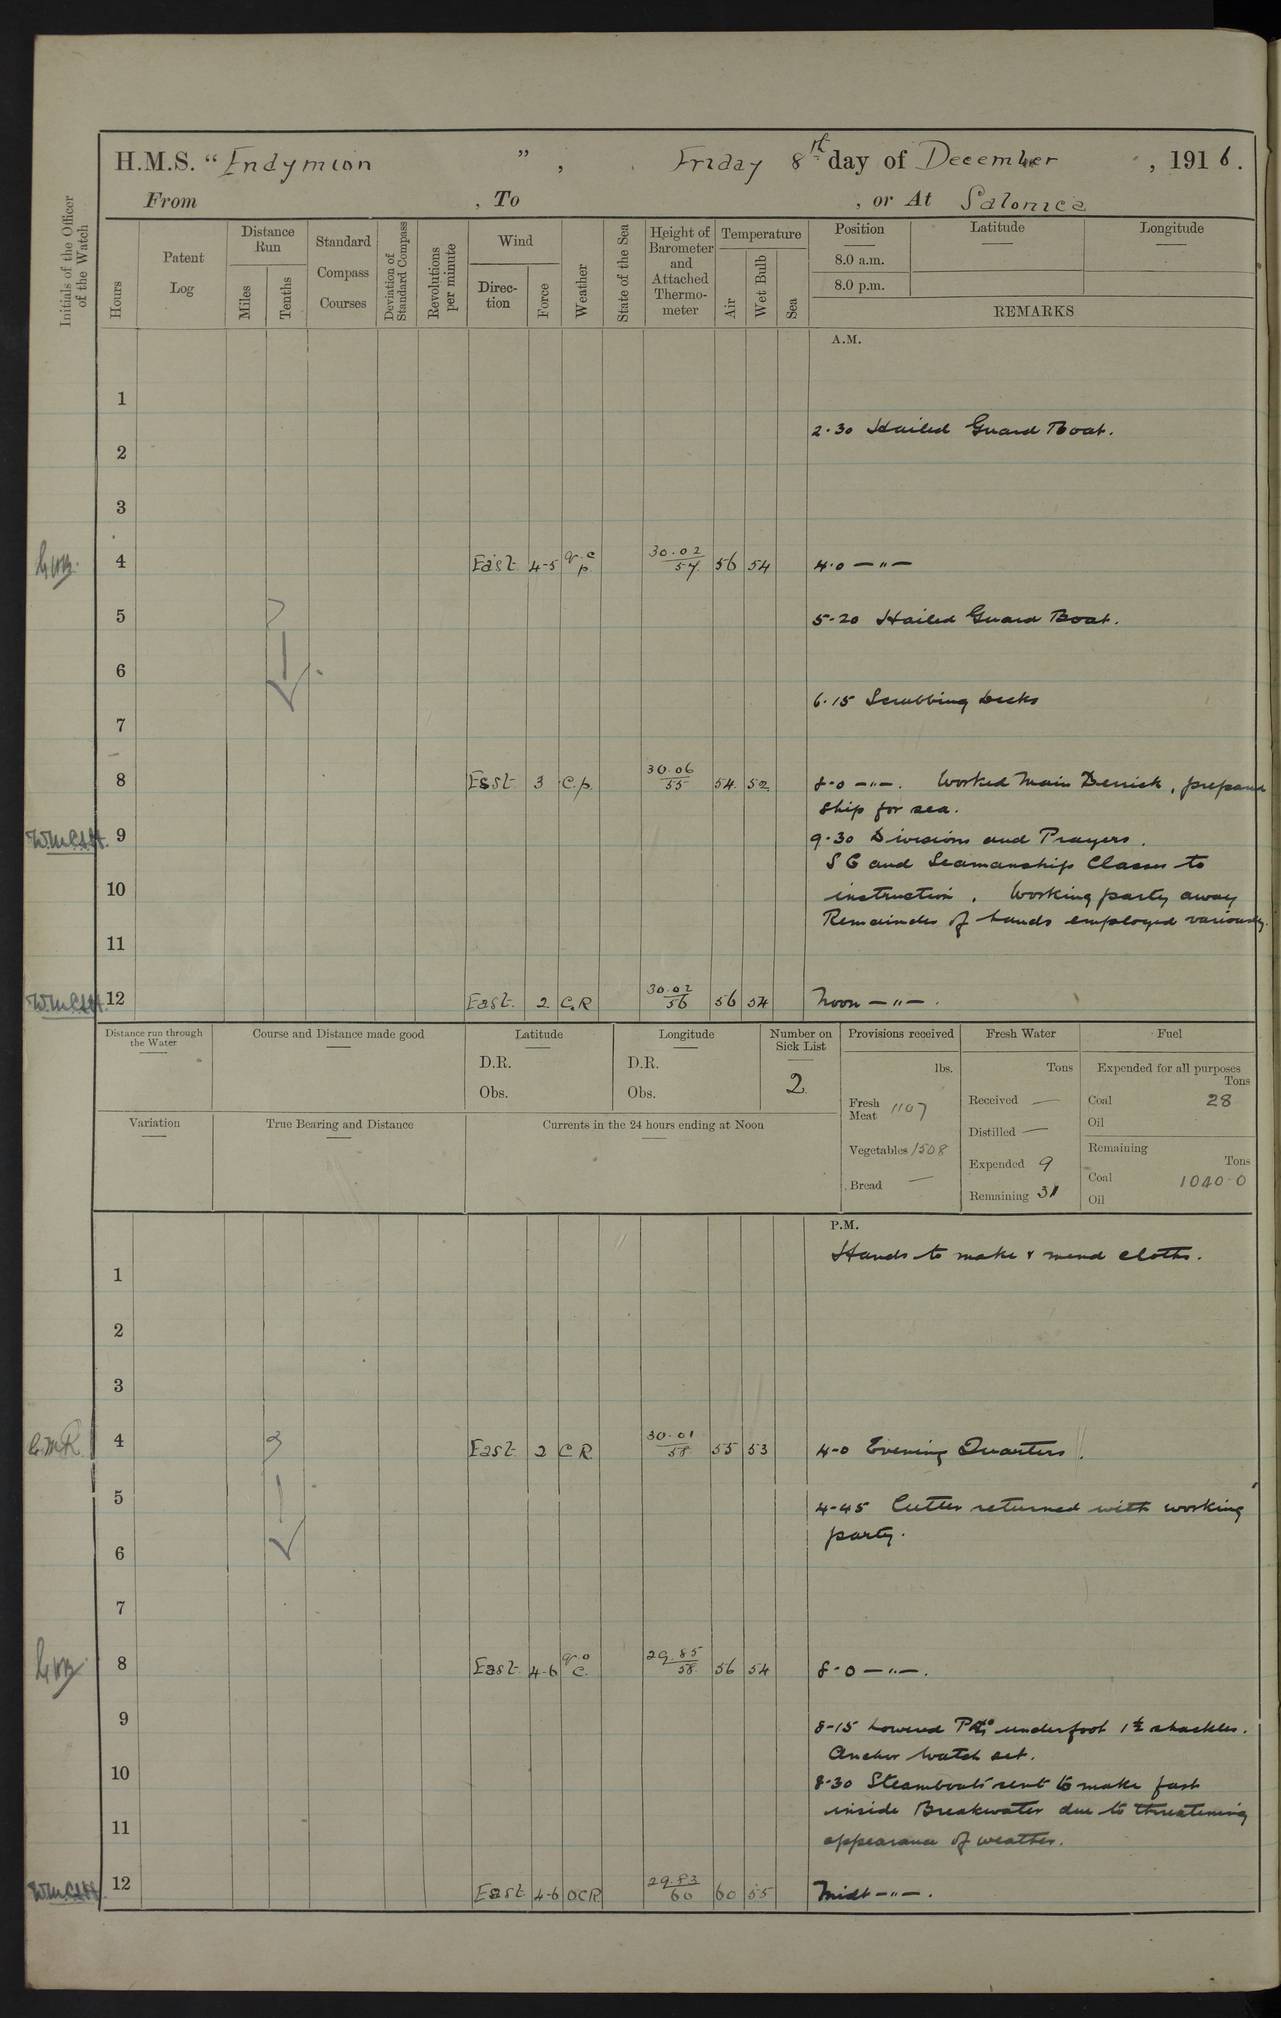 H.M.S. “Endymion”, Friday 8th day of December, 1916.
From , To , or At Salonica
Initials of the Officer of the Watch
Hours
Patent Log
Distance Run
Miles
Tenths
Standard Compass Courses
Deviation of Standard Compass
Revolutions per minute
Wind
Direction
Force
Weather
State of the Sea
Height of Barometer and Attached Thermometer
Temperature
Air
Wet Bulb
Sea
Position
8.0 a.m.
8.0 p.m.
Latitude
Longitude
REMARKS
A.M.
1
2.30 Hailed Guard Boat.
2
3
4 East 4-5 q.c p. 30.02 57 56 54 4.0 —"—
5 5-20 Hailed Guard Boat.
6
6.15 Scrubbing Decks
7
8 East 3 c.p. 30.06 55 54 52 8-0 —"—. Worked Main Derrick, prepared
ship for sea.
W.McC.H. 9 9.30 Divisions and Prayers.
S G and Seamanship Classes to
10 instruction. Working party away
Remainder of hands employed variously.
11
W.McC.H. 12 East. 2 C.R 30.02 56 56 54 Noon —"—.
Distance run through the Water
Course and Distance made good
Latitude
D.R.
Obs.
Longitude
D.R.
Obs.
Number on Sick List
2
Provisions received
lbs.
Fresh Meat 1107
Vegetables 1508
Bread —
Fresh Water
Tons
Received —
Distilled —
Expended 9
Remaining 31
Fuel
Expended for all purposes
Tons
Coal 28
Oil
Remaining
Tons
Coal 1040.0
Oil
Variation
True Bearing and Distance
Currents in the 24 hours ending at Noon
P.M.
Hands to make & mend cloths.
1
2
3
4 East 2 C R 30.01 58 55 53 4-0 Evening Quarters.
5 4-45 Cutter returned with working
party.
6
7
8 East 4-6 q.o c. 29.85 58 56 54 8-0 —"—.
9 8-15 Lowered underfoot 1½ shackles.
Anchor Watch set.
10 8-30 Steamboats sent to make fast
inside Breakwater due to threatening
11 appearance of weather.
W.McC.H. 12 East 4-6 OCR 29.83 60 60 55 Midt —"—.